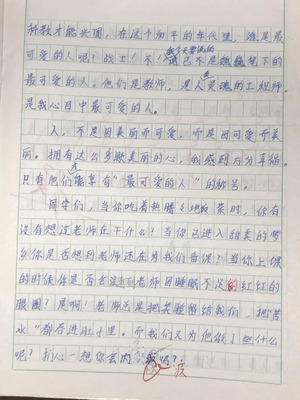 桥梁才能兴国，在这个和平的年代里，谁是最
可爱的人呢？战士！不！他已不是魏巍笔下的
最可爱的人。他们是教师，是人类灵魂的工程师。
是我心目中最可爱的人。
人，不是因美丽而可爱，而是因可爱而美
丽。拥有这么多颗美丽的心，我感到万分幸福。
只有他们能享有"最可爱的人"的称号。
同学们，当你吃着热腾腾的饭菜时，你有
没有想过老师在干什么？当你已进入甜美的梦
乡你是否想到老师还在为我们备课？当你上课
的时候你是否会老师因睡眠不足的红红的
眼圈？是啊！老师总是把笑脸留给我们，把苦
水"都吞进肚子里。而我们又为他做了些什么
呢？扪心一想你会内疚吗？